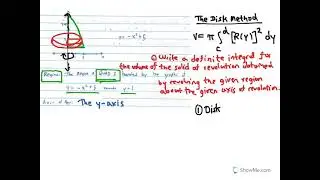 The Disk Method
V = π ∫ [R(y)]² dy
d
c
① Write a definite integral for
the volume of the solid of revolution obtained
by revolving the given region
about the given axis of revolution.
Region: The region in Quad I bounded by the graphs of
y = -x² +
The y-axis
① Disk
ShowMe.com